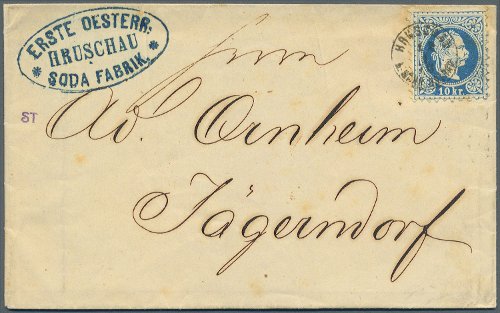 ERSTE OESTERR:
HRUSCHAU
* SODA FABRIK. *
HRUSCHAU
10 kr.
ST
Herrn
Ad. Ornheim
Jägerndorf